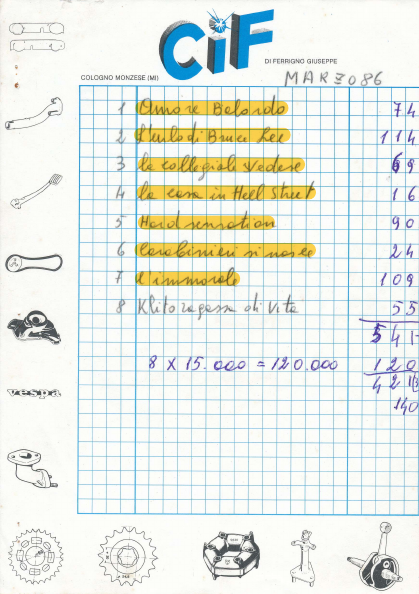 CIF
DI FERRIGNO GIUSEPPE
COLOGNO MONZESE (MI)
MARZO 86
1 Amore Belardo 74
2 L'urlo di Bruce Lee 114
3 la collegiale svedese 69
4 la casa in Hell Street 16
5 Hard sensation 90
6 Carabinieri si nasce 24
7 L'immorale 109
8 Klito ragassa di Vita 55
541
8 X 15.000 = 120.000 120
421
140
vespa